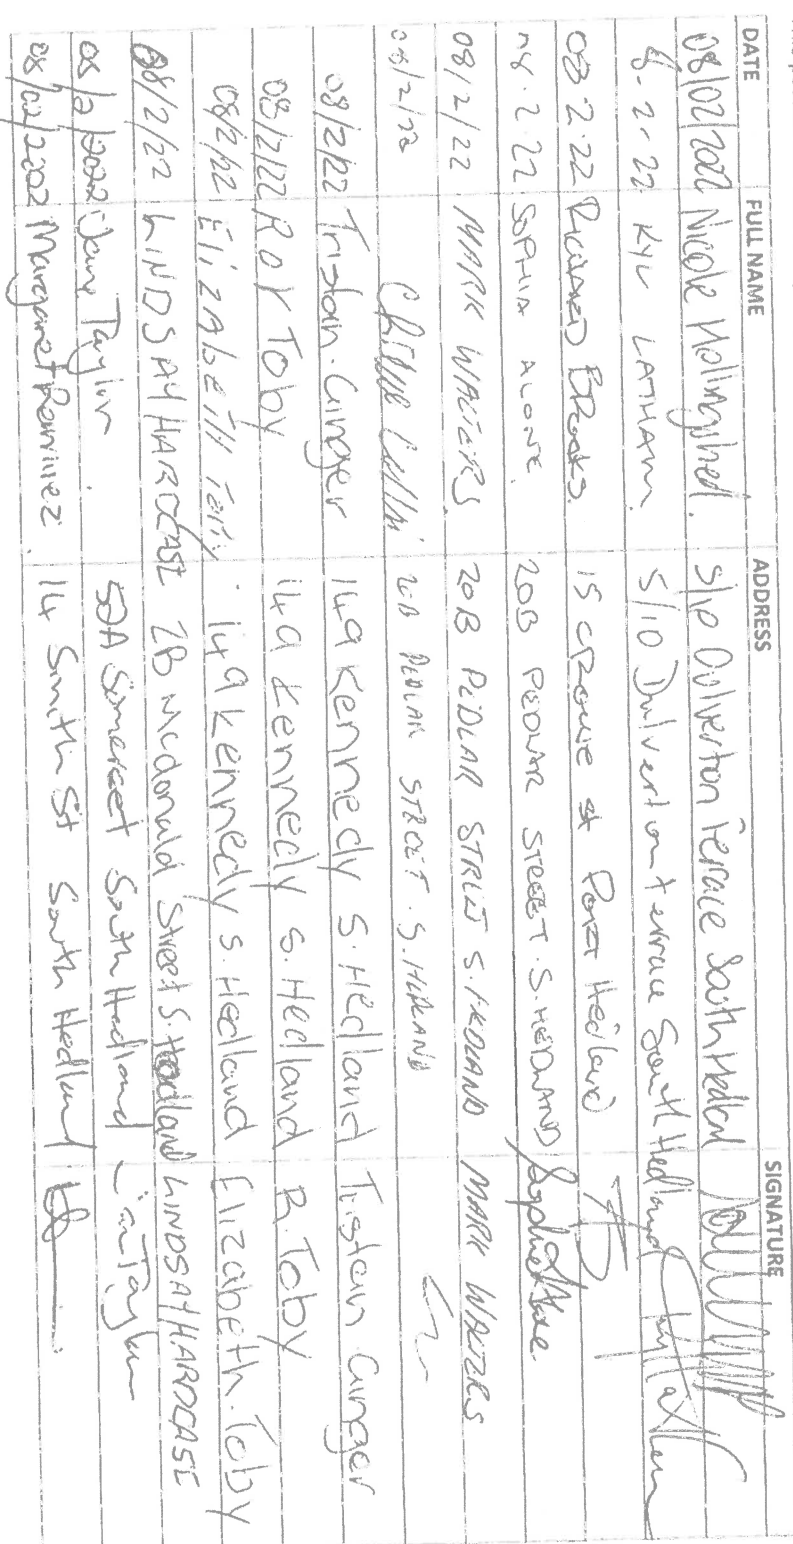 DATE FULL NAME ADDRESS SIGNATURE
08/02/2022 Nicole Hollingshed. 5/10 Dulverton Terrace South Hedland
8-2-22 KYL LATHAM 5/10 Dulverton terrace South Hedland
08.2.22 RICHARD BROOKS. 15 CROWE st PORT HEDLAND
08.2.22 SOPHIA ALONE. 20B PEDLAR STREET. S. HEDLAND
08/2/22 MARK WALTERS 20B PEDLAR STREET S. HEDLAND MARK WALTERS
08/2/22 20B PEDLAR STREET. S. HEDLAND
08/2/22 Tristan. Ginger 149 Kennedy S. Hedland Tristan Ginger
08/2/22 ROY Toby 149 Kennedy S. Hedland R. Toby
08/2/22 ELIZABETH Toby 149 Kennedy S. Hedland Elizabeth. Toby
08/2/22 LINDSAY HARDCASE 2B Mcdonald Street S. Hedland LINDSAY HARDCASE
08/2/2022 Jane Taylor 52A Somerset South Hedland Taylor
08/02/2022 Margaret Ramirez. 14 Smith St South Hedland